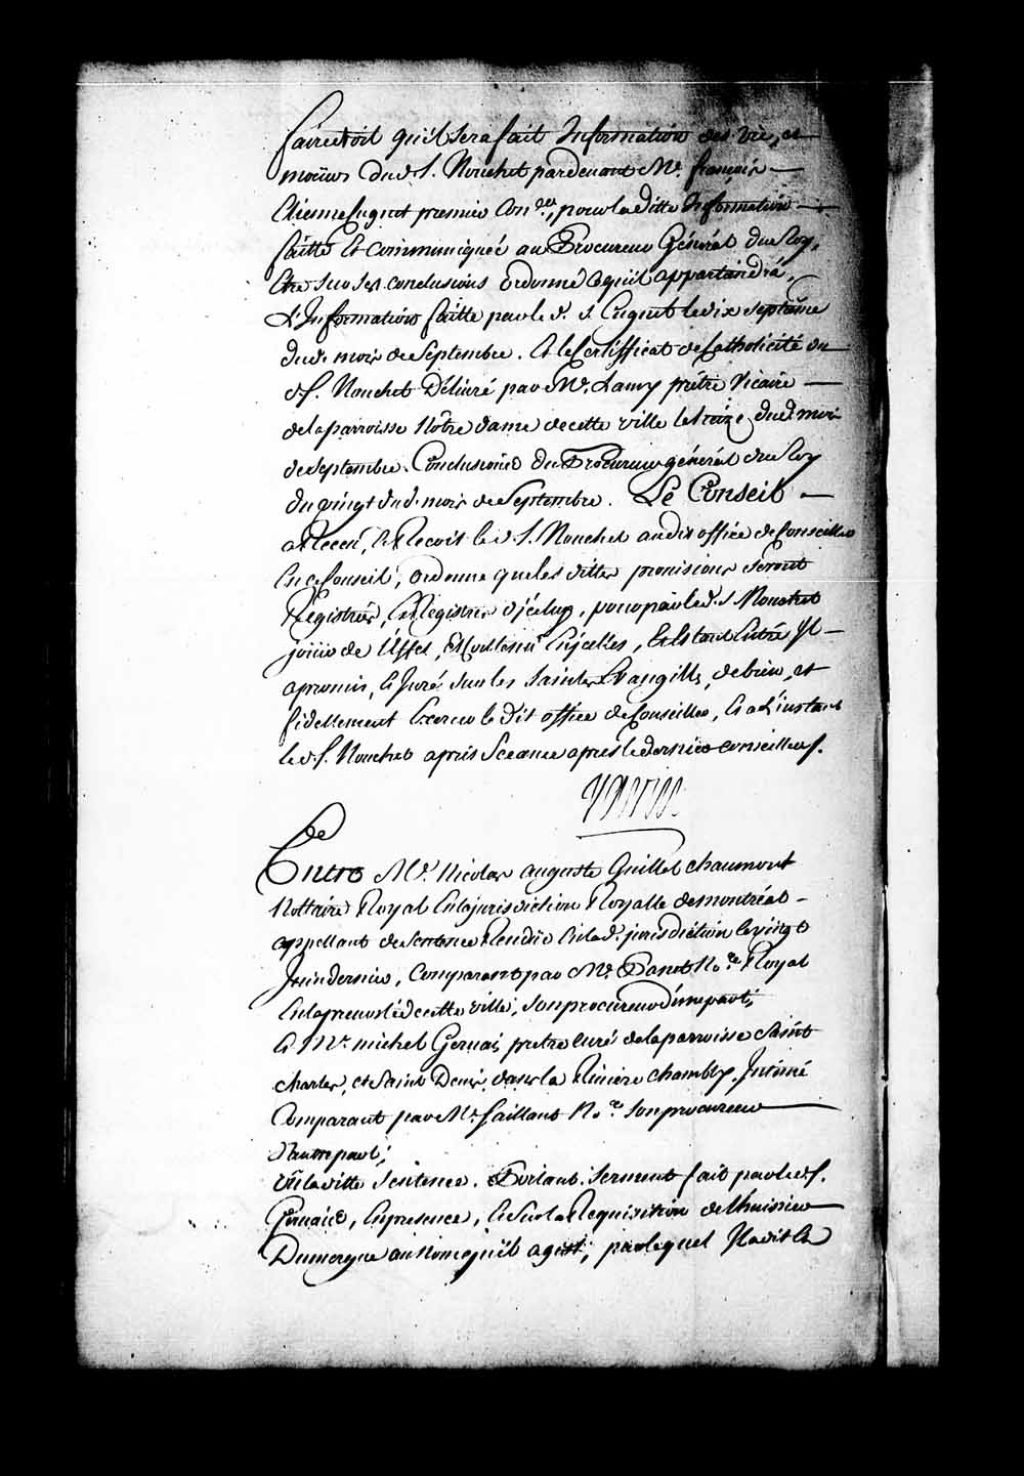 faire droit qu'il sera fait Information des vie, et
moeurs dud. S. Nouchet pardevant Me. françois
Etienne Cugnet premier Con.er, pour ladite Information
faitte Et communiqueé au Procureur Général du Roy,
Etre sur ses conclusions Ordonné ce qu'il appartiendra,
L'Information faitte par le d. S. Cugnet le dix septième
dud. mois de Septembre. Et le Certifficat de Catholicité du
d. S. Nouchet Délivré par Me. Lamy prêtre Vicaire
de la parroisse Nôtre dame de cette ville le treize dud. mois
de Septembre. Conclusions du Procureur général du Roy
du vingt dud. mois de Septembre. Le Conseil
a Receu, Et Reçoit le d. S. Nouchet audit office de Conseiller
En ce Conseil, ordonne que les dittes provisions seront
Registrés, Es Registres d'jceluy, pour par le d. S. Nouchet
jouir de l'Effet, Et Contenu En jcelles, Et Etant Entré Jl
a promis, Et Juré sur les saintes Evangilles, de bien, et
fidellement Exercer le dit office de Conseiller, Et a L'instant
le d. S. Nouchet a pris Sceance apres le dernier conseiller.
de
Entre Me. Nicolas auguste Guillet Chaumont
Nottaire Royal En la jurisdiction Royalle de montréal
appellant de Sentence Rendüe En lad. jurisdiction le vingt
Juin dernier, Comparant par Me. Panet No.re Royal
En la prevosté de cette ville, son procureur d'une part;
Et Me. michel Gervais pretre curé de la parroisse Saint
charles, et Saint Denis, dans la Riviere chambly, Intimé
Comparant par Me. Saillant No.re son procureur
d'autre part;
Vû la ditte Sentence. Portant. serment fait par le d. S.
Gervaise, En presence, Et Sur la Requisition de l'huissier
Dumergue au nom qu'il agist; par lequel Jl a dit la